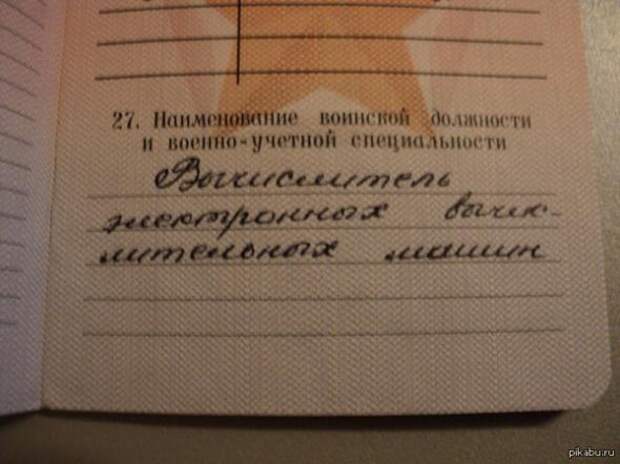 27. Наименование воинской должности
и военно-учетной специальности
Вычислитель
электронных вычис-
лительных машин
pikabu.ru